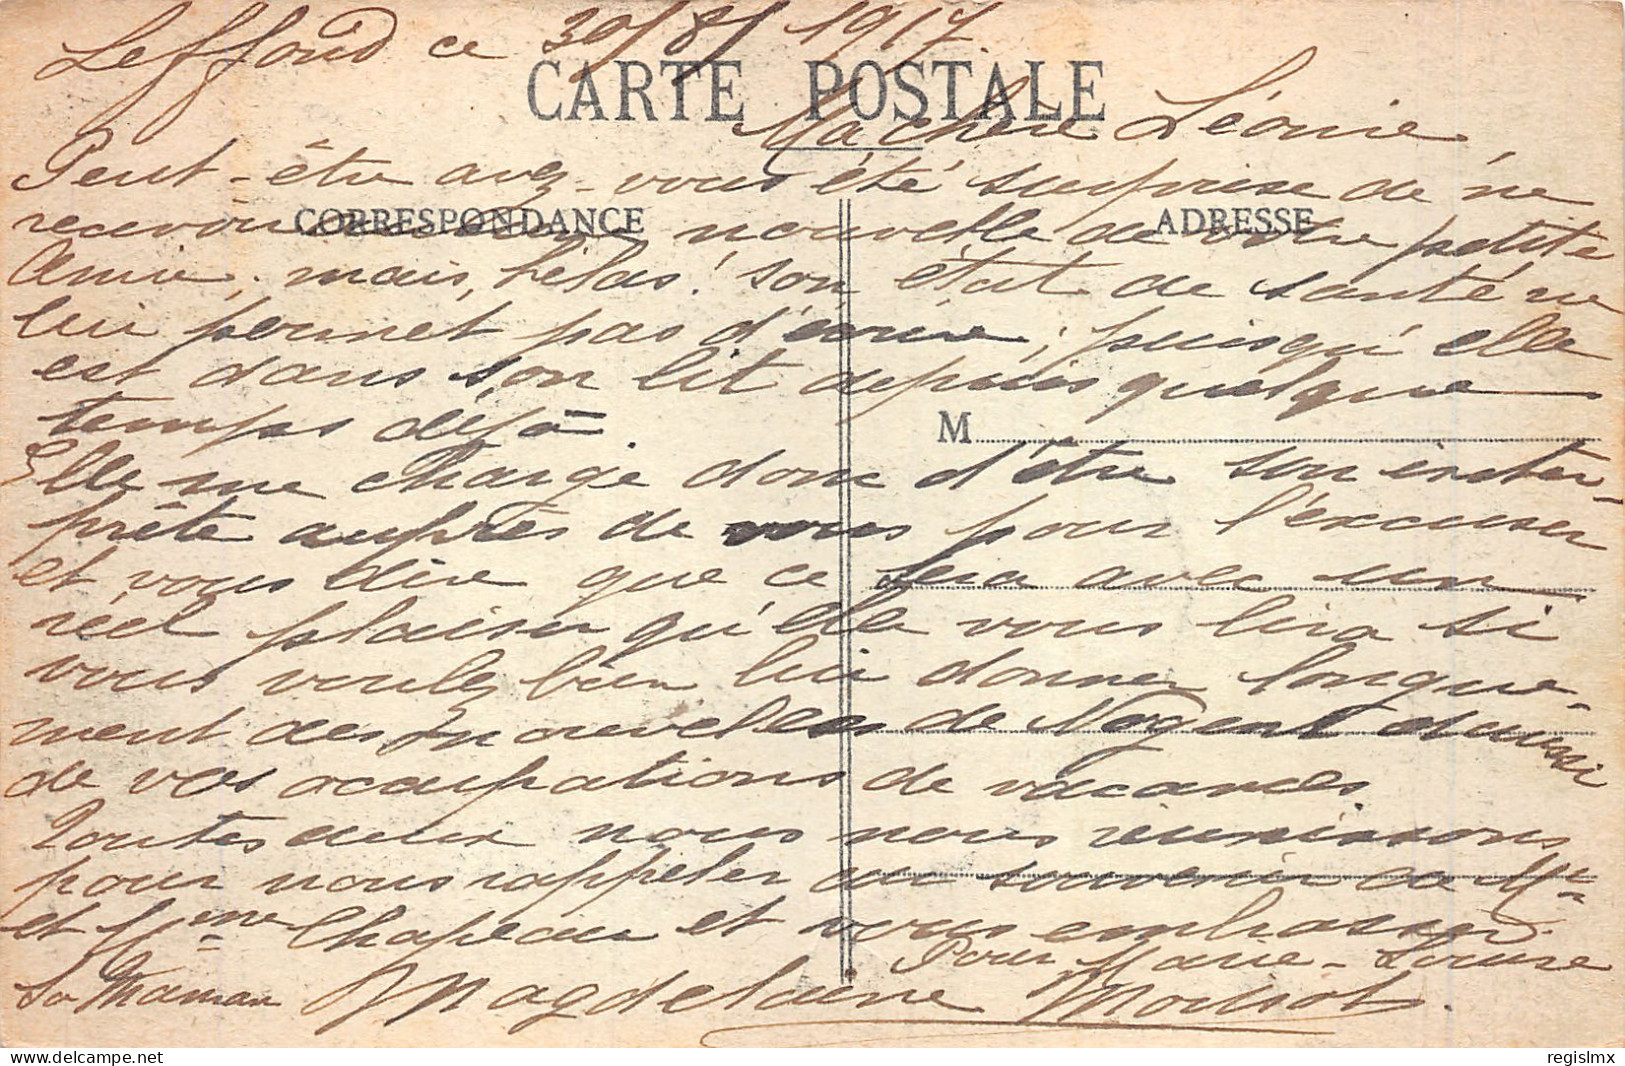 Leffond ce 30/8/1917.
CARTE POSTALE
Ma chère Léonie,
Peut-être avez-vous été surprise de ne
CORRESPONDANCE
ADRESSE
recevoir nouvelle de votre petite
Amie, mais, hélas! son état de santé ne
lui permet pas d'écrire, puisqu'elle
est dans son lit depuis quelque
temps déjà.
M
Elle me charge donc d'être son inter-
prête auprès de vous pour l'excuser
et vous dire que ce sera avec un
réel plaisir qu'elle vous lira si
vous voulez bien lui donner longue-
ment des nouvelles de Nogent
de vos occupations de vacances
Toutes deux nous nous réunissons
pour nous rappeler au souvenir de Mr
et Mme Chapeau et vous embrasser.
Pour Marie-Louise
Sa Maman Magdeleine
regislmx